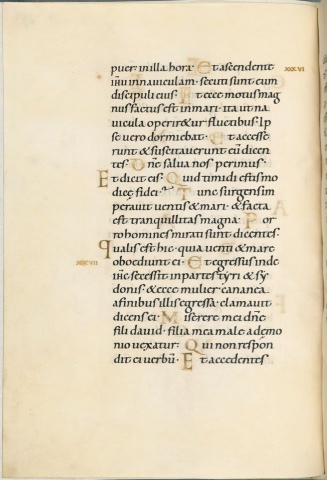 puer in illa hora· Et ascendente XXXVI
ihu in naviculam· secuti sunt eum
discipuli eius· Et ecce motus mag
nus factus est in mari· ita ut na
vicula operiretur fluctibus· Ip
se vero dormiebat· et accesse
runt & suscitaverunt eū dicen
tes· Dn̄e salva nos perimus·
Et dicit eis· Quid timidi estis mo
dice fidei· Tunc surgens im
peravit ventis & mari· & facta
est tranquillitas magna· Por
ro homines mirati sunt dicentes·
qualis est hic· quia venti & mare
obediunt ei· Et egressus inde XXXVII
ih̄c secessit in partes tyri & sy
donis· & ecce mulier cananea
a finibus illis egressa· clamavit
dicens ei· Miserere mei dn̄e
fili david· filia mea male a demo
nio vexatur· Qui non respon
dit ei verbū· Et accedentes